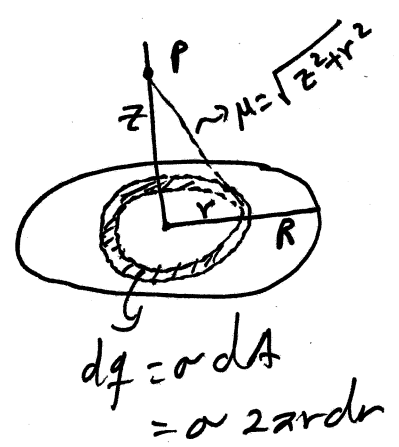 P
μ=√z²+r²
z
r
R
dq = σ dA
= σ 2πr dr